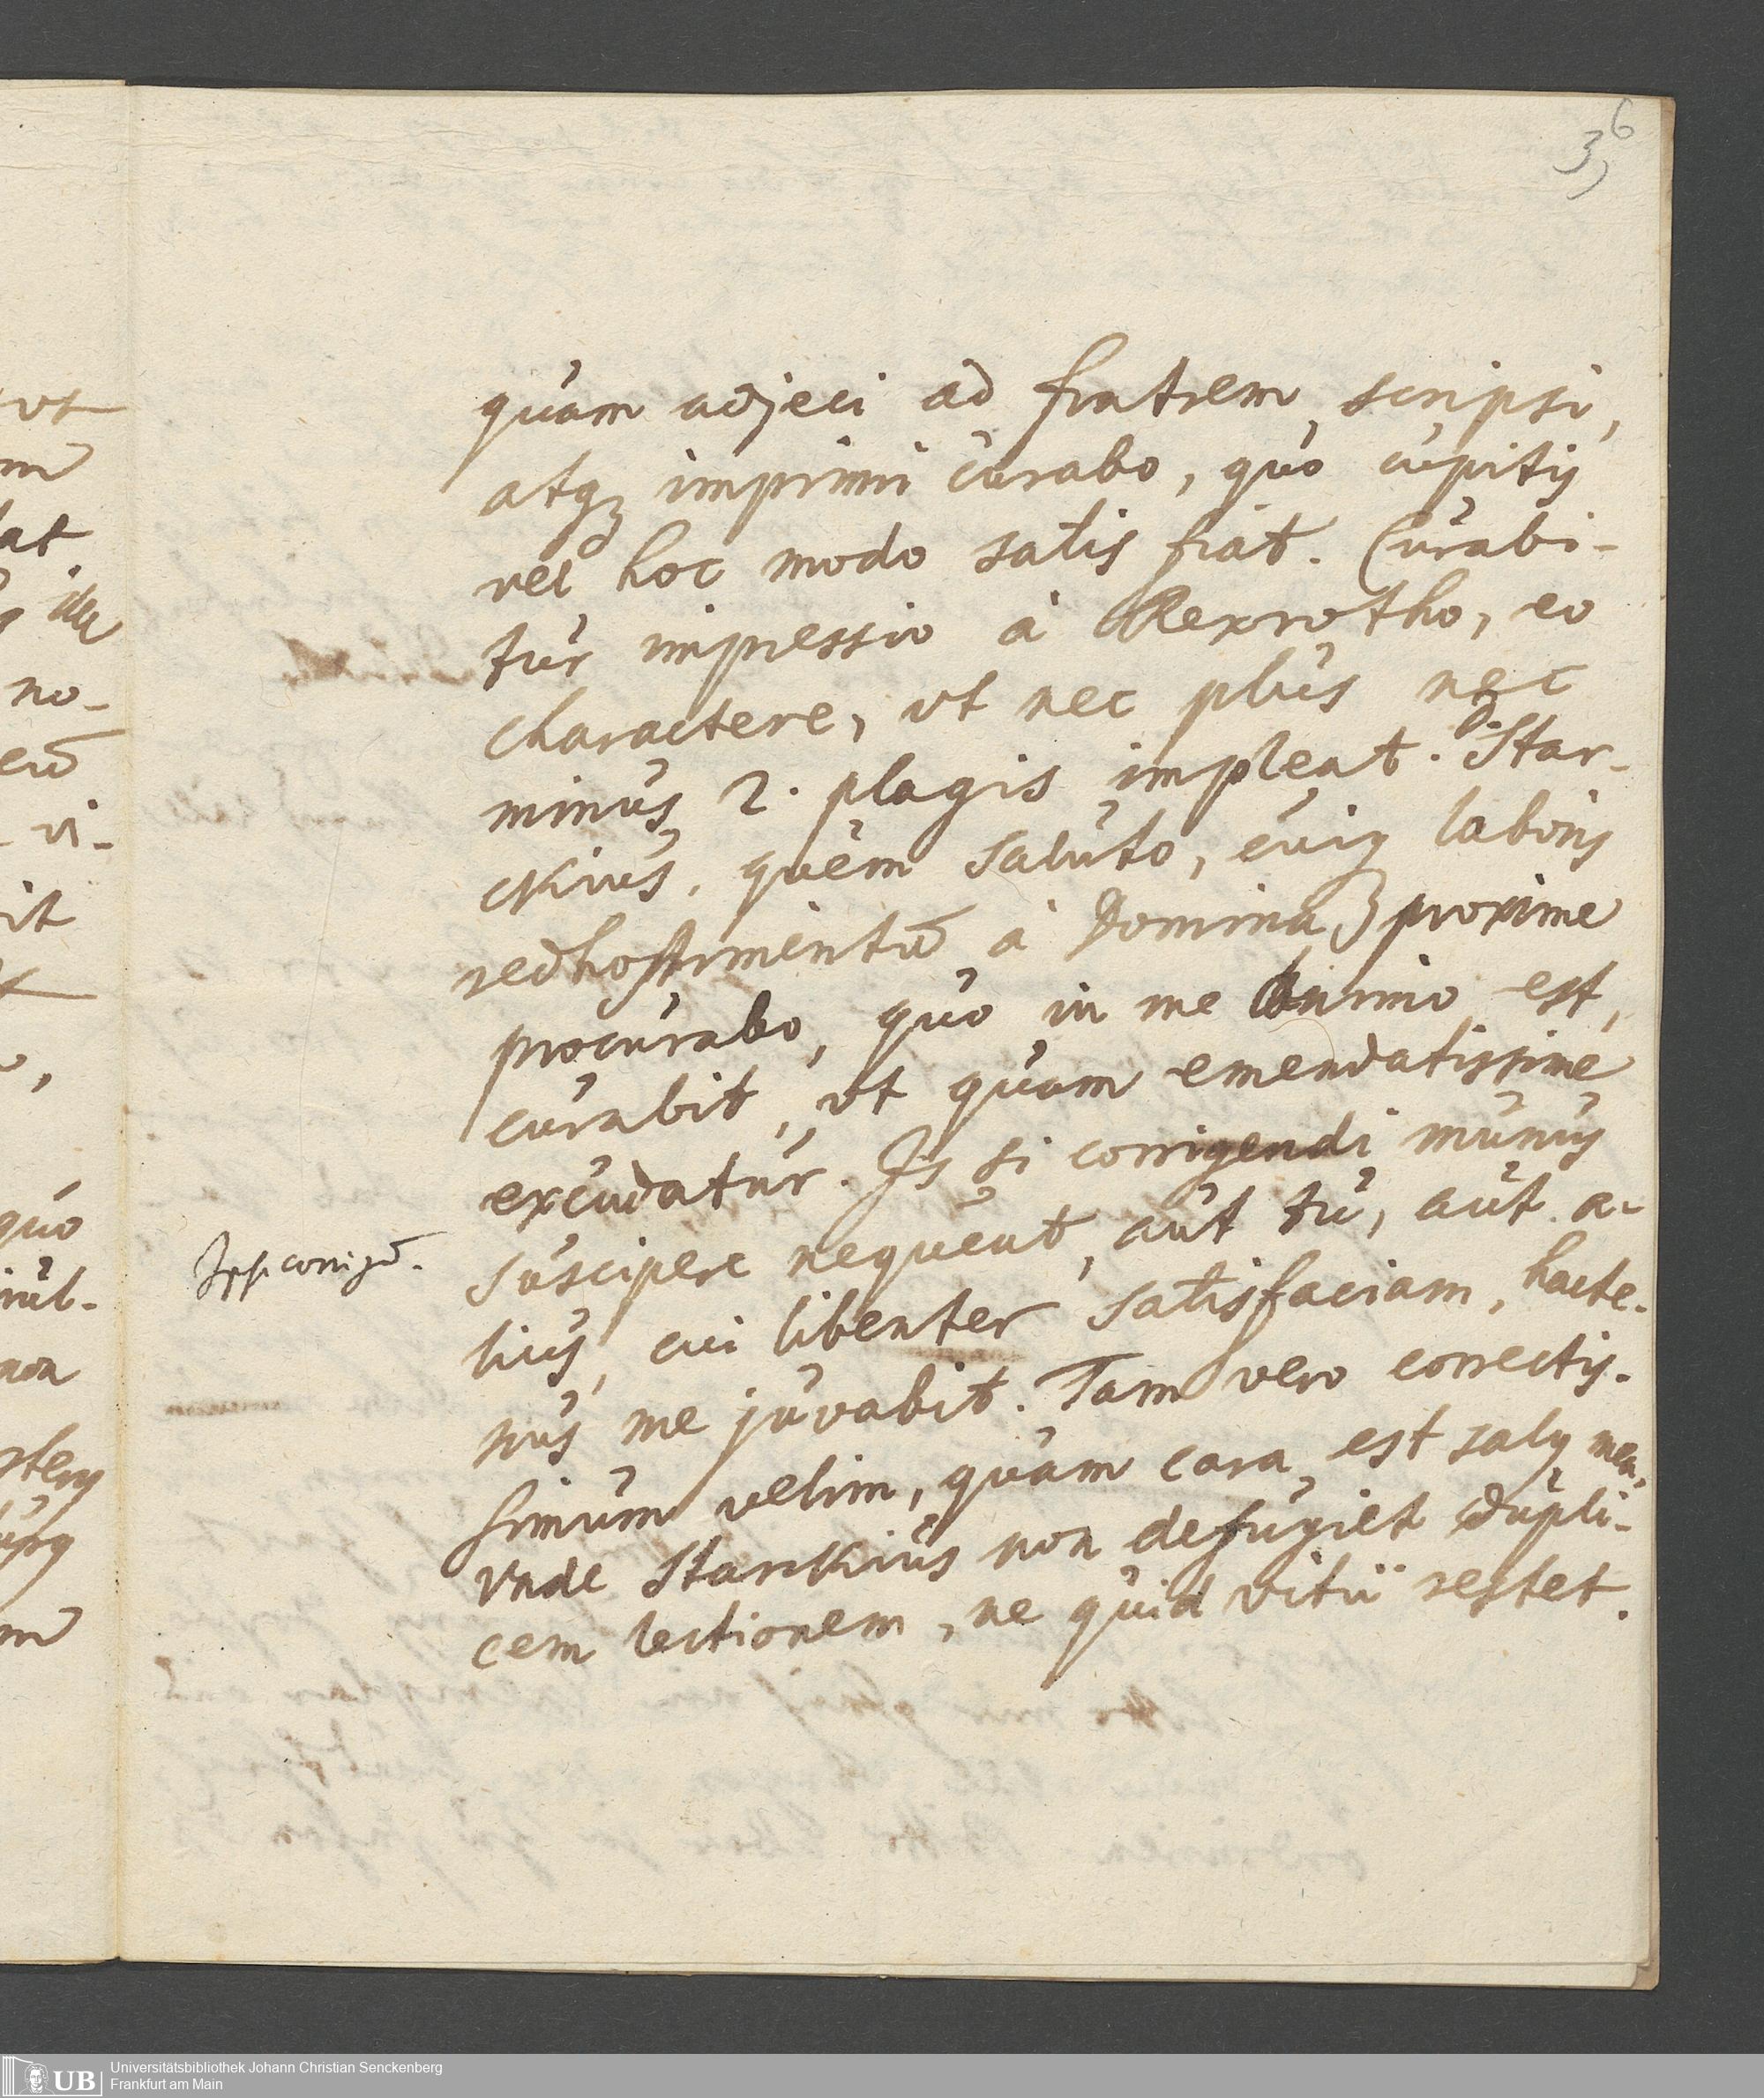 36
quam adjeci ad fratrem, scripsi,
atq3 imprimi curabo, quo cupitis
vel hoc modo satis fiat. Curabi-
tur impressio à Rexrotho, eo
charactere, vt nec plus nec
minus 2. plagis impleat. Star-
ckius, quem saluto, cuiq3 laboris
redhostimentū à Domina proxime
procurabo, quo in me animo est,
curabit, vt quam emendatissime
excudatur. Is si corrigendi munus
suscipere nequeat, aut tu, aut a-
lius, cui libenter satisfaciam, hacte-
nus me juvabit. Tam vero correctis-
simum velim, quam cara est salus mea,
Vnde Starckius non defugiet dupli-
cem lectionem, ne quid vitii restet.
vt
at
no-
vi-
it
quo
non
UB
Universitätsbibliothek Johann Christian Senckenberg
Frankfurt am Main